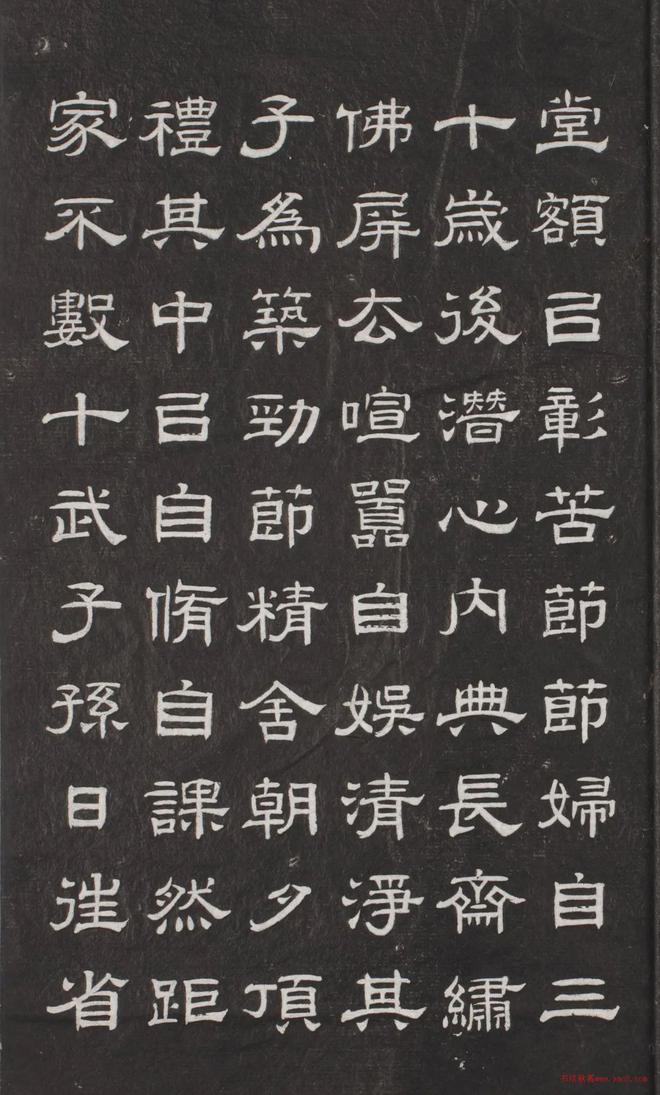 堂額㠯彰苦節節婦自三
十歲後潛心内典長齋繡
佛屏厺喧嚻自娛清淨其
子為築勁節精舍朝夕頂
禮其中㠯自脩自課然距
家不數十武子孫日往省